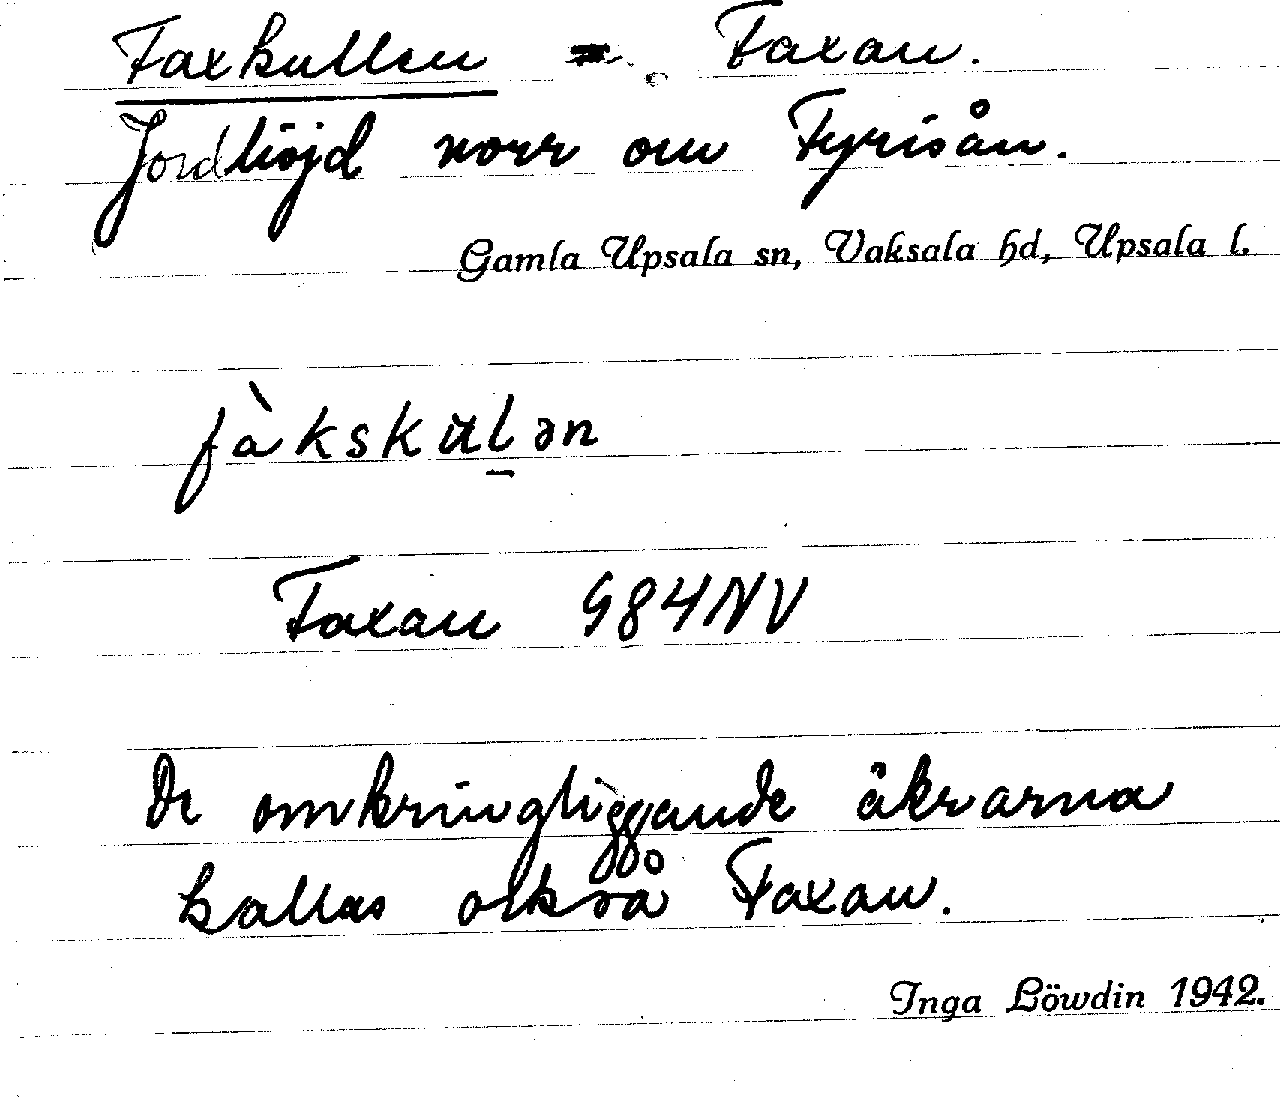 Faxkullen = Faxan.
Jordhöjd norr om Fyrisån.
Gamla Upsala sn, Vaksala hd, Upsala l.
fàkskulən
Faxan 984NV
De omkringliggande åkrarna
kallas också Faxan.
Inga Löwdin 1942.